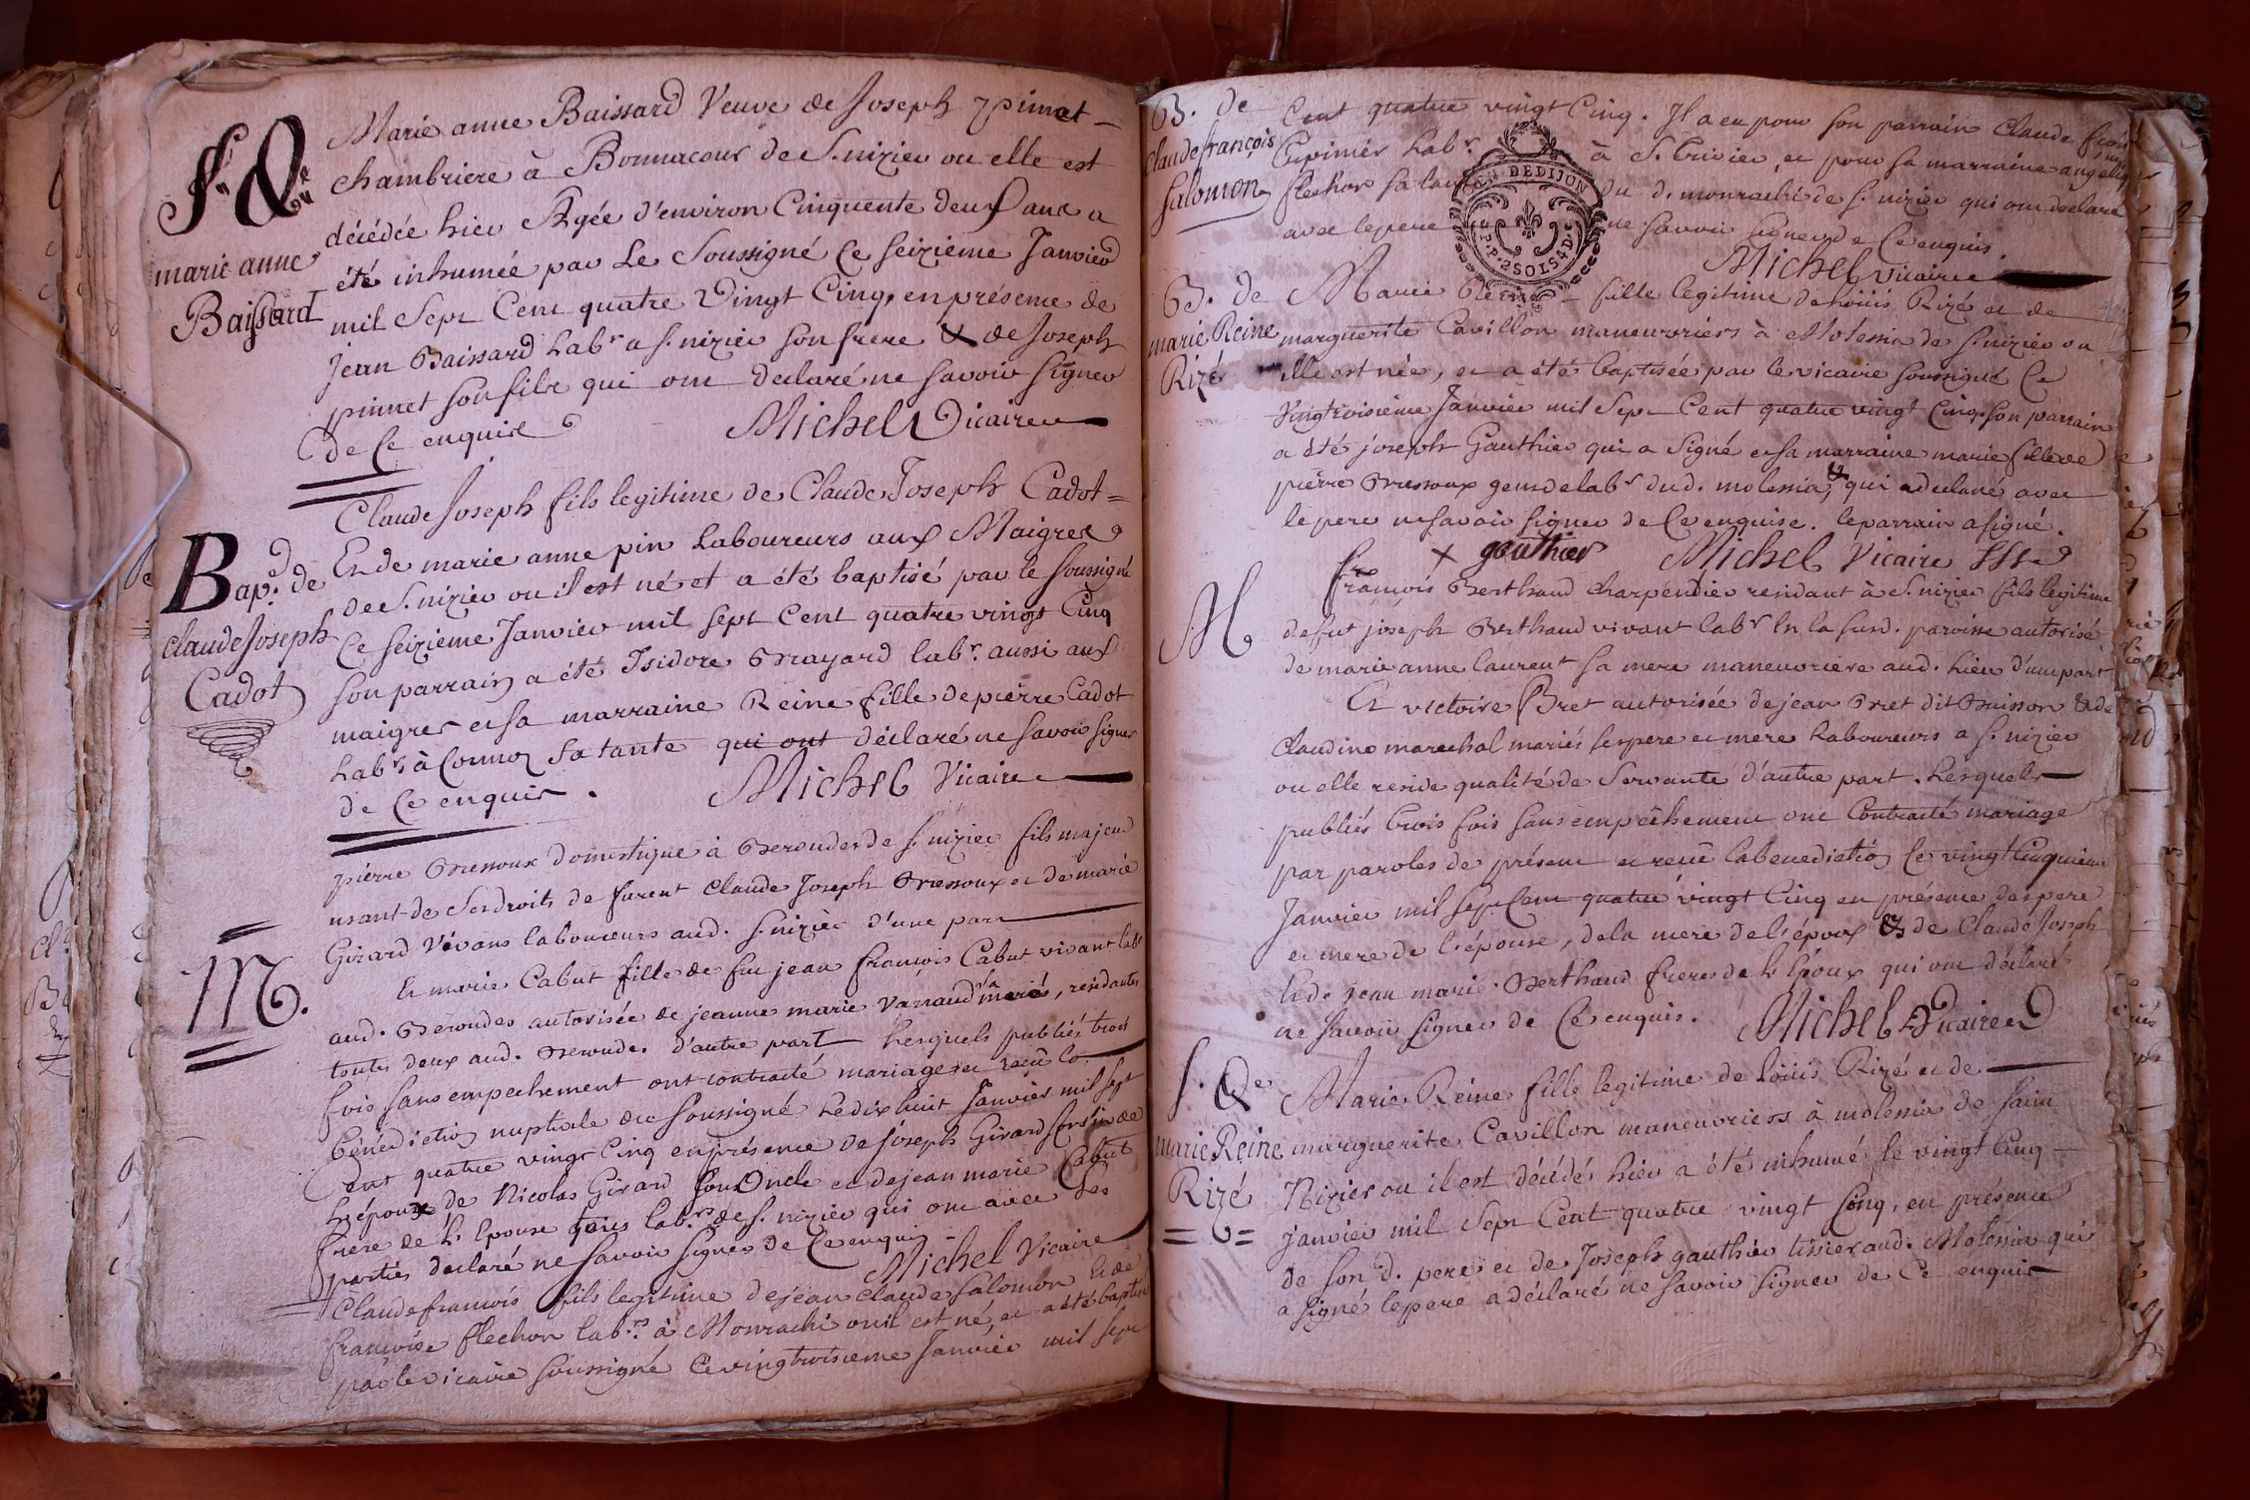 S. De
marie anne
Baissard
Marie anne Baissard Veuve de Joseph pimet
chambriere à Bonnacour de S. nizier ou elle est
décédée hier Agée d'environ Cinquente deux ans a
été inhumée par Le Soussigné Ce seizieme Janvier
mil Sept Cent quatre Vingt Cinq, en présence de
Jean Baissard Labr a s. nizier son frere & de Joseph
pimet son fils qui ont declaré ne savoir signer
de Ce enquis
Michel Vicaire
Bap. de
claude Joseph
Cadot
Claude Joseph fils legitime de Claude Joseph Cadot
Et de marie anne pin Laboureurs aux Maigres
de S. nizier ou il est né et a été baptisé par le soussigné
Ce seizieme Janvier mil sept Cent quatre vingt Cinq
son parrain a été Isidore Mayard labr. aussi aux
maigres et sa marraine Reine fille de pierre Cadot
Labr. à Cormoz sa tante qui ont déclaré ne savoir signer
de Ce enquis.
Michel Vicaire
M.
pierre Bressoux domestique à Beroudes de s. nizier fils majeur
usant de ses droits de furent Claude Joseph Bressoux et de marie
Girard Vivans laboureurs aud. s. nizier d'une part
Et marie Cabut fille de feu jean francois Cabut vivant labr
aud. Beroudes autorisée de jeanne marie Vanaud sa mere, residantes
toutes deux aud. Beroudes d'autre part Lesquels publiés trois
fois sans empechement ont contracté mariage et recu la
bénédiction nuptiale du soussigné Le dix huit Janvier mil sept
Cent quatre vingt Cinq en présence de Joseph Girard Cousin de
L'époux de Nicolas Girard son Oncle et de jean marie Cabut
frere de L'Epouse tous labrs. de s. nizier qui ont avec les
parties declaré ne savoir signer de Ce enquis
Michel Vicaire
Claude francois fils legitime de jean claude Salomon et de
francoise flechon labrs. à Monrachi ou il est né, et a été baptisé
par le vicaire soussigné Ce vingtroisieme Janvier mil sept
B. de
Claude françois
Salomon
Cent quatre vingt Cinq. Il a eu pour son parrain Claude francois
Cuvinier Labr. à S. Trivier et pour sa marraine angelique
flechon sa tante du d. monrachi de s. nizier qui ont declaré
avec le pere ne savoir signer de Ce enquis.
Michel vicaire
DE DIJON
2 SOLS 4 D.
B. de
marie Reine
Rizé
Marie Reine fille legitime de Loüis Rizé et de
marguerite Cavillon maneuvriers à Molessia de s. nizier ou
elle est née, et a été baptisée par le vicaire soussigné Ce
Vingtroisieme Janvier mil Sept Cent quatre vingt Cinq. son parrain
a été joseph Gauthier qui a signé et sa marraine marie fille de
pierre Bressoux gens de labr dud. molessia, qui a declaré avec
le pere ne savoir signer de Ce enquise. le parrain a signé.
x gauthier Michel Vicaire
M
françois Berthaud charpendier residant à S. nizier fils legitime
de fut joseph Berthaud vivant labr En la susd. paroisse autorisé
de marie anne laurent sa mere maneuvriere aud. Lieu d'une part
Et victoire Bret autorisée de jean Bret dit Buisson & de
Claudine marechal mariés ses pere et mere Laboureurs a s. nizier
ou elle reside qualité de Servante d'autre part. Lesquels
publiés trois fois sans empêchement ont Contracté mariage
par paroles de présent et recu la benediction Ce vingt Cinquieme
Janvier mil sept Cent quatre vingt Cinq en présence des pere
et mere de l'épouse, de la mere de l'époux & de Claude Joseph
Et de jean marie Berthaud freres de L'Epoux qui ont déclaré
ne savoir signer de Ce enquis.
Michel Vicaire
S. De
marie Reine
Rizé
Marie Reine fille legitime de Loüis Rizé et de
marguerite Cavillon maneuvriers à molessia de saint
Nizier ou il est décédé hier a été inhumé le vingt Cinq
janvier mil Sept Cent quatre vingt Cinq, en présence
de son d. pere et de Joseph gauthier tissier aud. Molessia qui
a signé le pere a déclaré ne savoir signer de Ce enquis